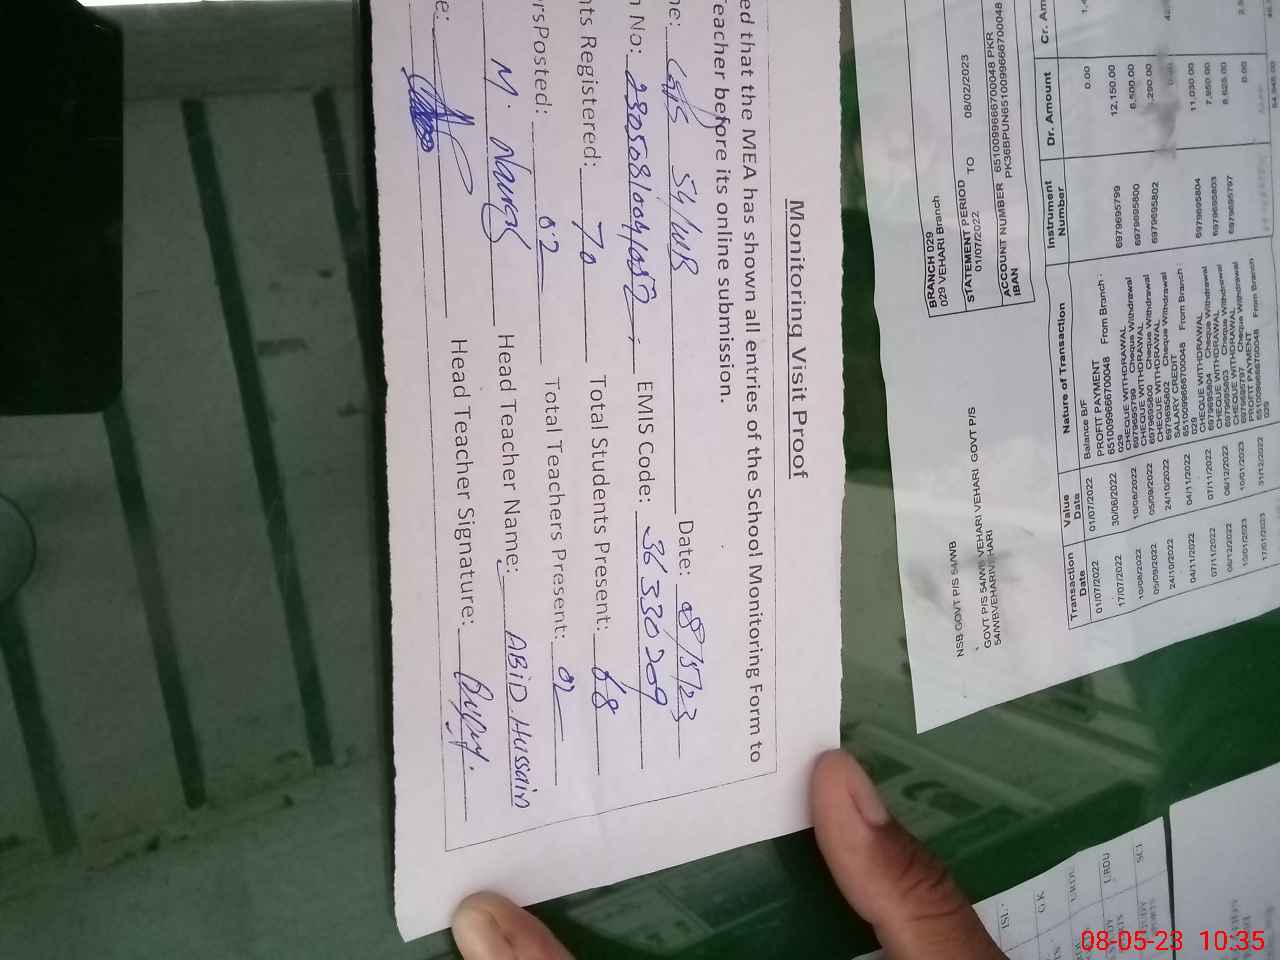 Monitoring Visit Proof
ed that the MEA has shown all entries of the School Monitoring Form to
Teacher before its online submission.
me: GPS 54/WB Date: 08/5/23
n No: EMIS Code: 36330209
nts Registered: 70 Total Students Present: 68
ersPosted: 02 Total Teachers Present: 02
M. Nawaz Head Teacher Name: ABID Hussain
e: Head Teacher Signature:
BRANCH 029
029 VEHARI Branch
STATEMENT PERIOD
01/07/2022 TO 08/02/2023
ACCOUNT NUMBER 6510099666700048 PKR
IBAN PK36BPUN6510099666700048
NSB GOVT P/S 54/WB
GOVT P/S 54/WB VEHARI VEHARI GOVT P/S
54/WBVEHARIVEHARI
Transaction Date Value Date Nature of Transaction Instrument Number Dr. Amount Cr. Am
01/07/2022 01/07/2022 Balance B/F 0.00
17/07/2022 30/06/2022 PROFIT PAYMENT
6510099666700048 From Branch :
029
10/08/2022 10/08/2022 CHEQUE WITHDRAWAL 6979695799 12,150.00
6979695799 Cheque Withdrawal
05/09/2022 05/09/2022 CHEQUE WITHDRAWAL 6979695800 6,500.00
6979695800 Cheque Withdrawal
24/10/2022 24/10/2022 CHEQUE WITHDRAWAL 6979695802
6979695802 Cheque Withdrawal
04/11/2022 04/11/2022 SALARY CREDIT
6510099666700048 From Branch :
029
07/11/2022 07/11/2022 CHEQUE WITHDRAWAL 6979695804 11,030.00
6979695804 Cheque Withdrawal
08/12/2022 08/12/2022 CHEQUE WITHDRAWAL 6979695803 7,950.00
6979695803 Cheque Withdrawal
10/01/2023 10/01/2023 CHEQUE WITHDRAWAL 6979695797 8,625.00
6979695797 Cheque Withdrawal
17/01/2023 31/12/2022 PROFIT PAYMENT 0.00
6510099666700048 From Branch
029
ISL.
G.K
URDU
URDU
SCI
08-05-23 10:35